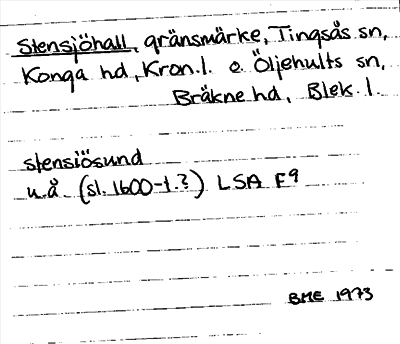 Stensjöhall, gränsmärke, Tingsås sn,
Konga hd, Kron.l. o. Öljehults sn,
Bräkne hd, Blek. l.
stensiösund
u.å (sl. 1600-t.?) LSA F9
BME 1973